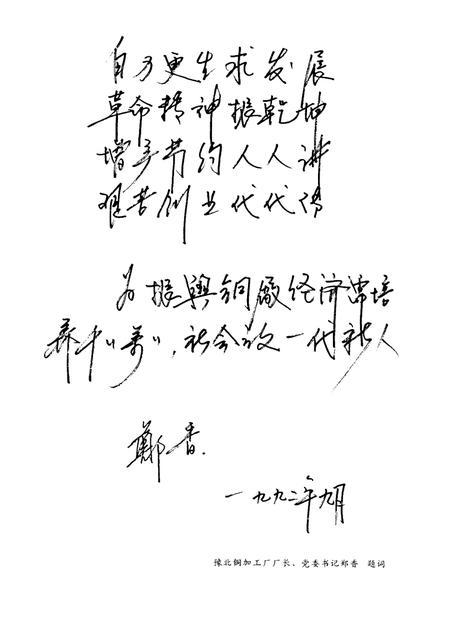 自力更生求发展
革命精神振乾坤
增产节约人人讲
艰苦创业代代传
为振興铜厰经济培
养社会一代新人
鄭香.
一九九二年九月
豫北铜加工厂厂长、党委书记郑香 题词